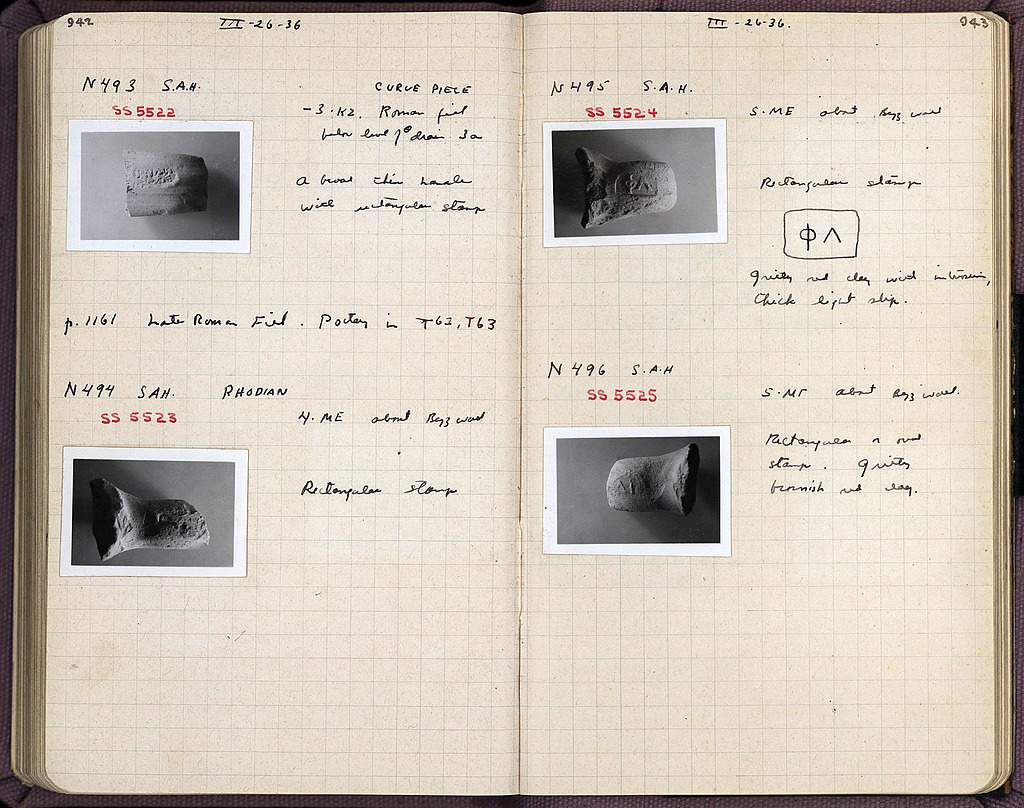 942
III-26-36
N493 S.A.H. CURVE PIECE
SS 5522
-3·KZ. Roman fill
below level of drain 3a
A broad thin handle
with rectangular stamp
p.1161 Late Roman Fill. Pottery in T63, T63
N494 SAH. RHODIAN
SS 5523
4·ME about Byz wall
Rectangular stamp
III-26-36.
943
N495 S.A.H.
SS 5524
5·ME about Byz wall
Rectangular stamp
ΦΛ
Gritty red clay with
thick light slip.
N496 S.A.H
SS 5525
about Byz wall.
Rectangular or oval
stamp. Gritty
brownish red clay.